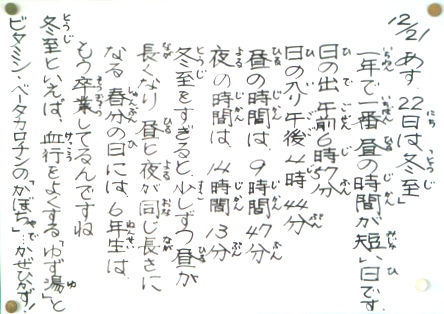 12/21 あす 22日は「冬至」
一年で一番昼の時間が短い日です。
日の出 午前6時57分
日の入り 午後4時44分
昼の時間は、9時間47分
夜の時間は、14時間13分
冬至をすぎると少しずつ昼が
長くなり 昼と夜が同じ長さに
なる 春分の日には、6年生は、
もう卒業してるんですね
冬至といえば、血行をよくする「ゆず湯」と
ビタミン・ベータカロチンの「かぼちゃ」で…かぜひかず!